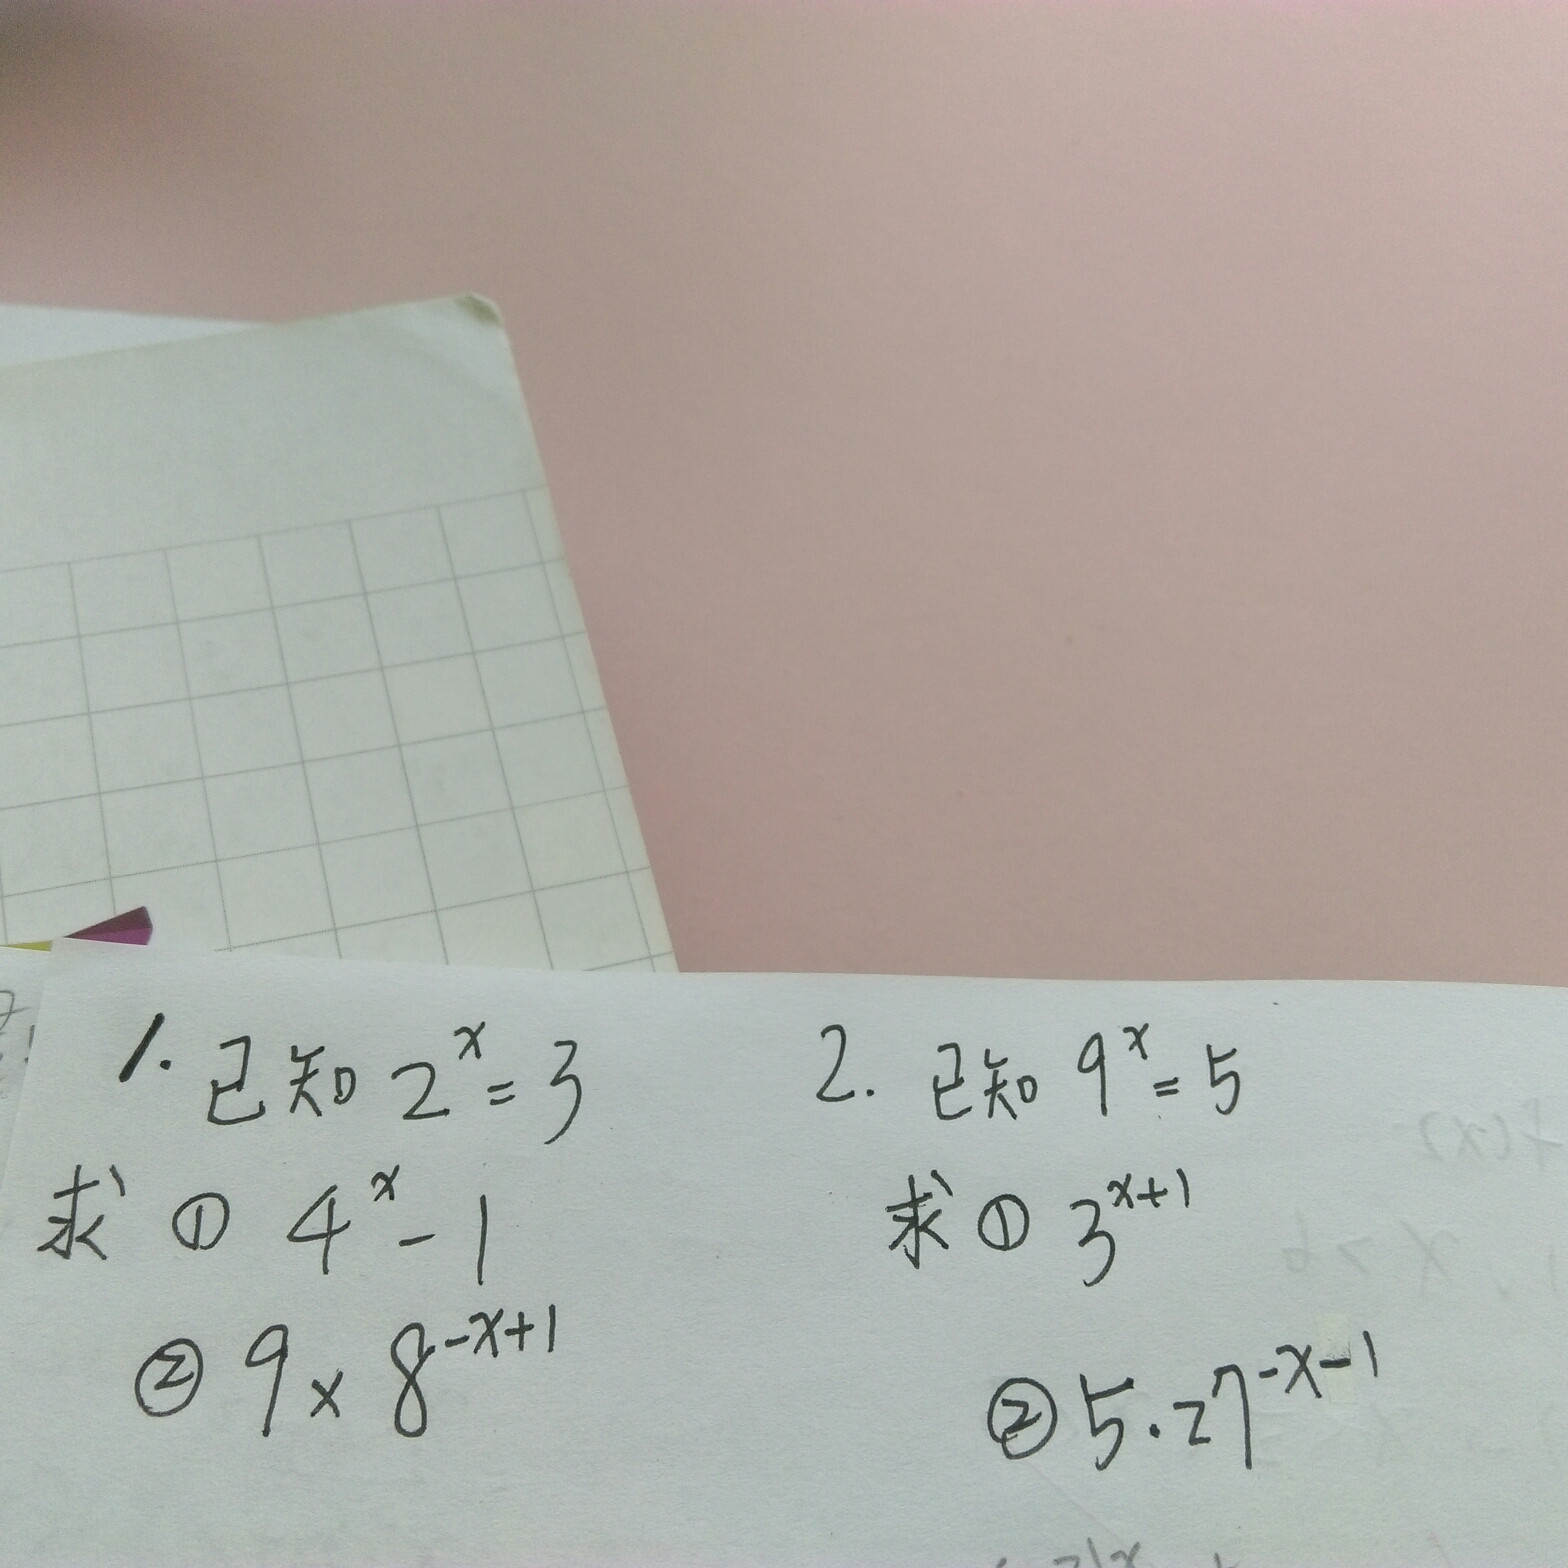 1. 已知 2^x = 3
求 ① 4^x - 1
② 9 × 8^{-x+1}
2. 已知 9^x = 5
求 ① 3^{x+1}
② 5·27^{-x-1}